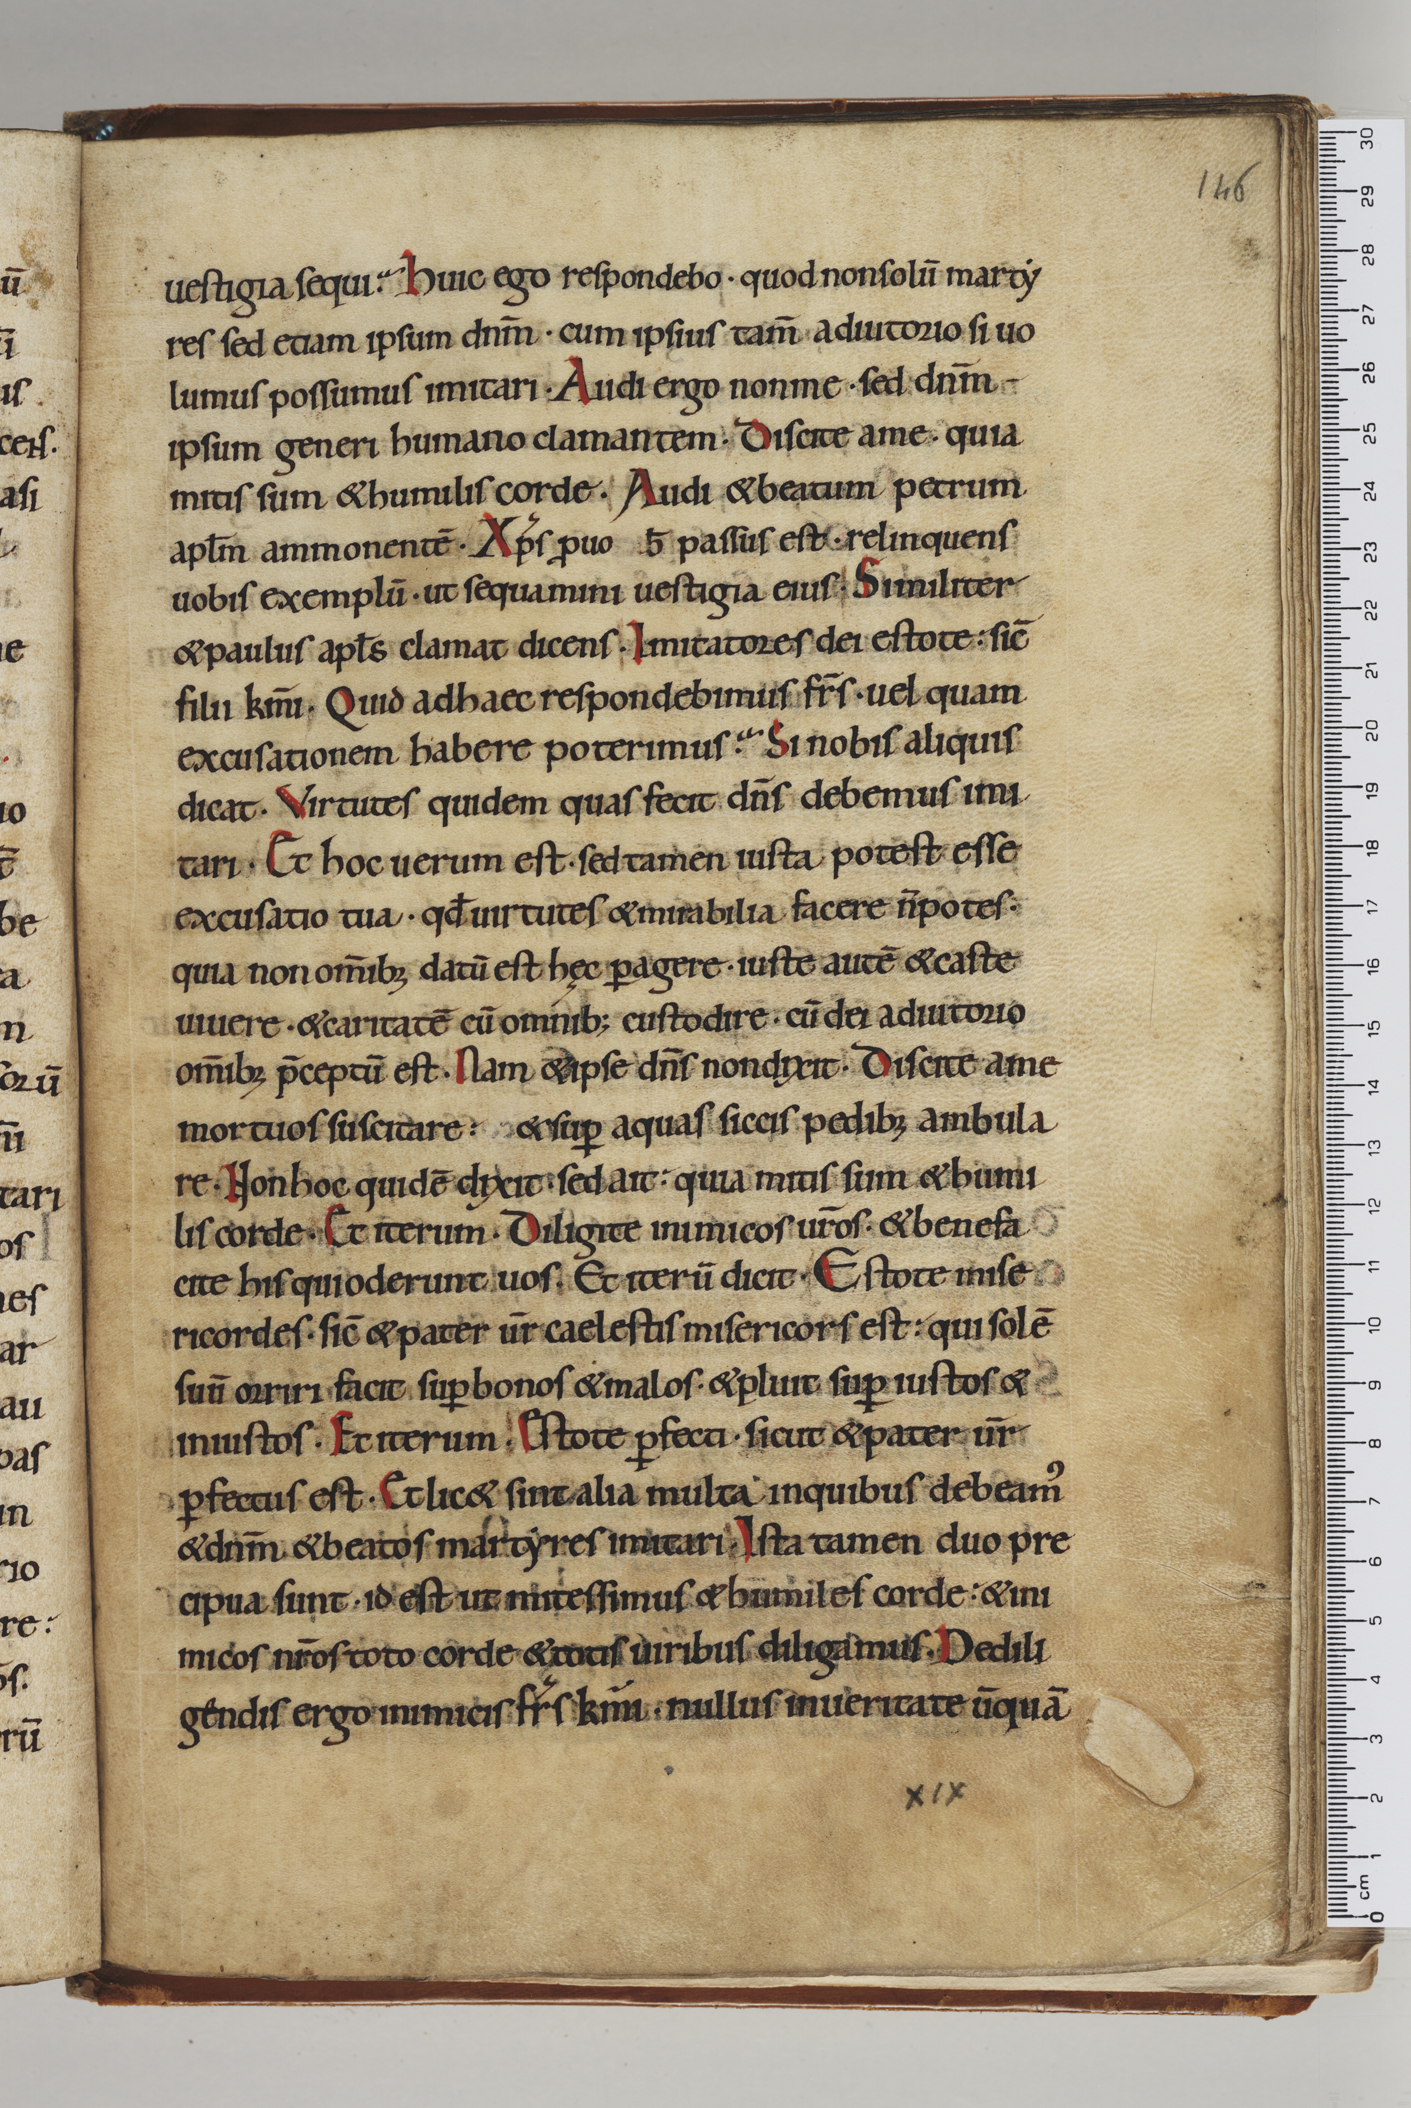 146
uestigia sequi? Huic ego respondebo · quod nonsolū martẏ
res sed etiam ipsum dnm̄ · cum ipsius tam̄ adiutorio si uo
lumus possumus imitari · Audi ergo nonme · sed dnm̄
ipsum generi humano clamantem · Discite ame · quia
mitis sum &humilis corde · Audi &beatum petrum
apl̄m ammonentē · Xp̄s ꝓ uo b̄ passus est · relinquens
uobis exemplū · ut sequamini uestigia eius · Similiter
&paulus apl̄s clamat dicens · Imitatores dei estote : sic̄
filii km̄i · Quid adhaec respondebimus fr̄s · uel quam
excusationem habere poterimus? Si nobis aliquis
dicat · Virtutes quidem quas fecit dn̄s debemus imi
tari · Et hoc uerum est · sed tamen iusta potest esse
excusatio tua · qđ uirtutes &mirabilia facere n̄ potes ·
quia non om̄ibꝫ datū est hęc ꝑagere · iuste autē &caste
uiuere · &caritatē cū omnib; custodire · cū dei adiutorio
om̄ibꝫ p̄ceptū est · Nam &ipse dn̄s nondixit · Discite ame
mortuos suscitare : &suꝑ aquas siccis pedibꝫ ambula
re · Non hoc quidē dixit · sed ait : quia mitis sum &humi
lis corde · Et iterum · Diligite inimicos ur̄os · &benefa
cite his quioderunt uos · Et iterū dicit · Estote mise
ricordes · sic̄ &pater ur̄ caelestis misericors est : qui solē
suū orriri facit suꝑ bonos &malos · &pluit suꝑ iustos &
iniustos · Et iterum · Estote ꝑfecti · sicut &pater ur̄
ꝑfectus est · Et lic& sint alia multa inquibus debeamꝰ
&dnm̄ &beatos martẏres imitari · Ista tamen duo pre
cipua sunt · id est ut mitessimus &humiles corde : &ini
micos nr̄os toto corde &totis uiribus diligamus · Dedili
gendis ergo inimicis fr̄s km̄i · nullus inueritate ūquā
xix